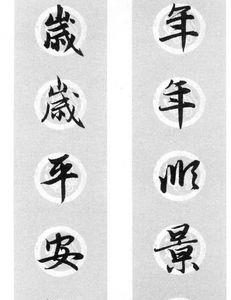 年年順景
歲歲平安